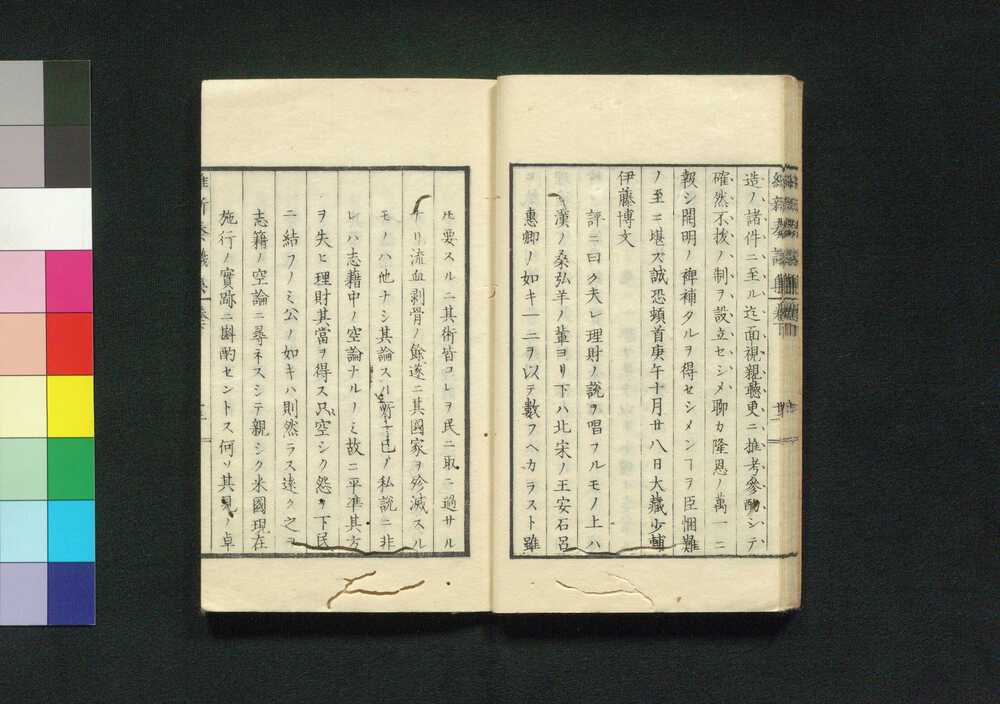 造ノ諸件ニ至ル迄面視親聽更ニ推考參酌シテ
確然不拔ノ制ヲ設立セシメ聊カ隆恩ノ萬一ニ
報シ開明ノ裨補タルヲ得セシメンヿヲ臣悃難
ノ至ニ堪ズ誠恐頓首庚午十月廿八日大藏少輔
伊藤博文
評ニ曰ク夫レ理財ノ說ヲ唱フルモノ上ハ
漢ノ桑弘羊ノ輩ヨリ下ハ北宋ノ王安石呂
惠卿ノ如キ一二ヲ以テ數フヘカラスト雖
𪜈要スルニ其術皆コレヲ民ニ取ニ過サル
ナリ流血剥骨ノ餘遂ニ其國家ヲ殄滅スル
モノハ他ナシ其論スル所一己ノ私說ニ非
レハ志藉中ノ空論ナルノミ故ニ平準其方
ヲ失ヒ理財其當ヲ得ス只空シク怨ヲ下民
ニ結フノミ公ノ如キハ則然ラス遠ク之ヲ
志籍ノ空論ニ尋ネスシテ親シク米國現在
施行ノ實跡ニ斟酌セントス何ソ其見ノ卓